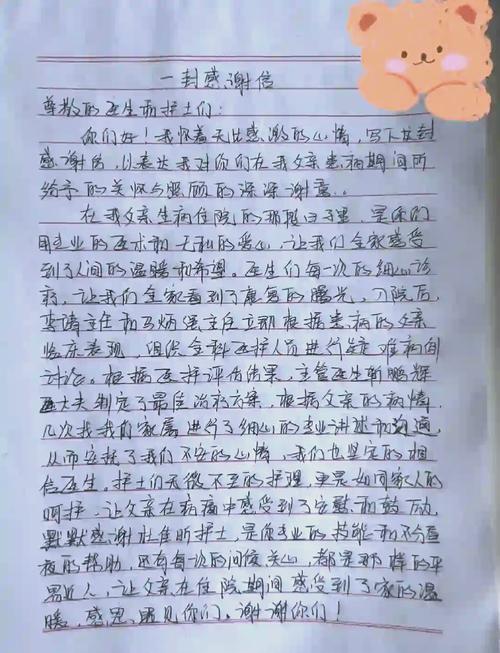 一封感谢信
尊敬的医生和护士们：
你们好！我怀着无比感激的心情，写下这封
感谢信，以表达我对你们在我父亲患病期间所
给予的关怀与照顾的深深谢意。
在我父亲生病住院的那段日子里，是你们
用专业的医术和无私的爱心，让我们全家感受
到了人间的温暖和希望。医生们每一次的细心诊
疗，让我们全家看到了康复的曙光。入院后，
李涛主任和马炳 主任立动根据患病的父亲
临床表现，组织全科医护人员进行疑难病例
讨论。根据医护评估结果，主管医生靳鹏辉
大夫制定了最佳治疗方案，根据父亲的病情，
几次找我们家属进行了细心的专业讲述和沟通，
从而安抚了我们不安的心情，我们也坚定的相
信医生。护士们无微不至的护理，更是如同家人的
呵护，让父亲在病痛中感受到了安慰和鼓励，
默默感谢杜佳昕护士，是你专业的技能和不分昼
夜的帮助，还有每次的问候关心，都是那样的平
易近人，让父亲在住院期间感受到了家的温
暖，感恩遇见你们，谢谢你们！